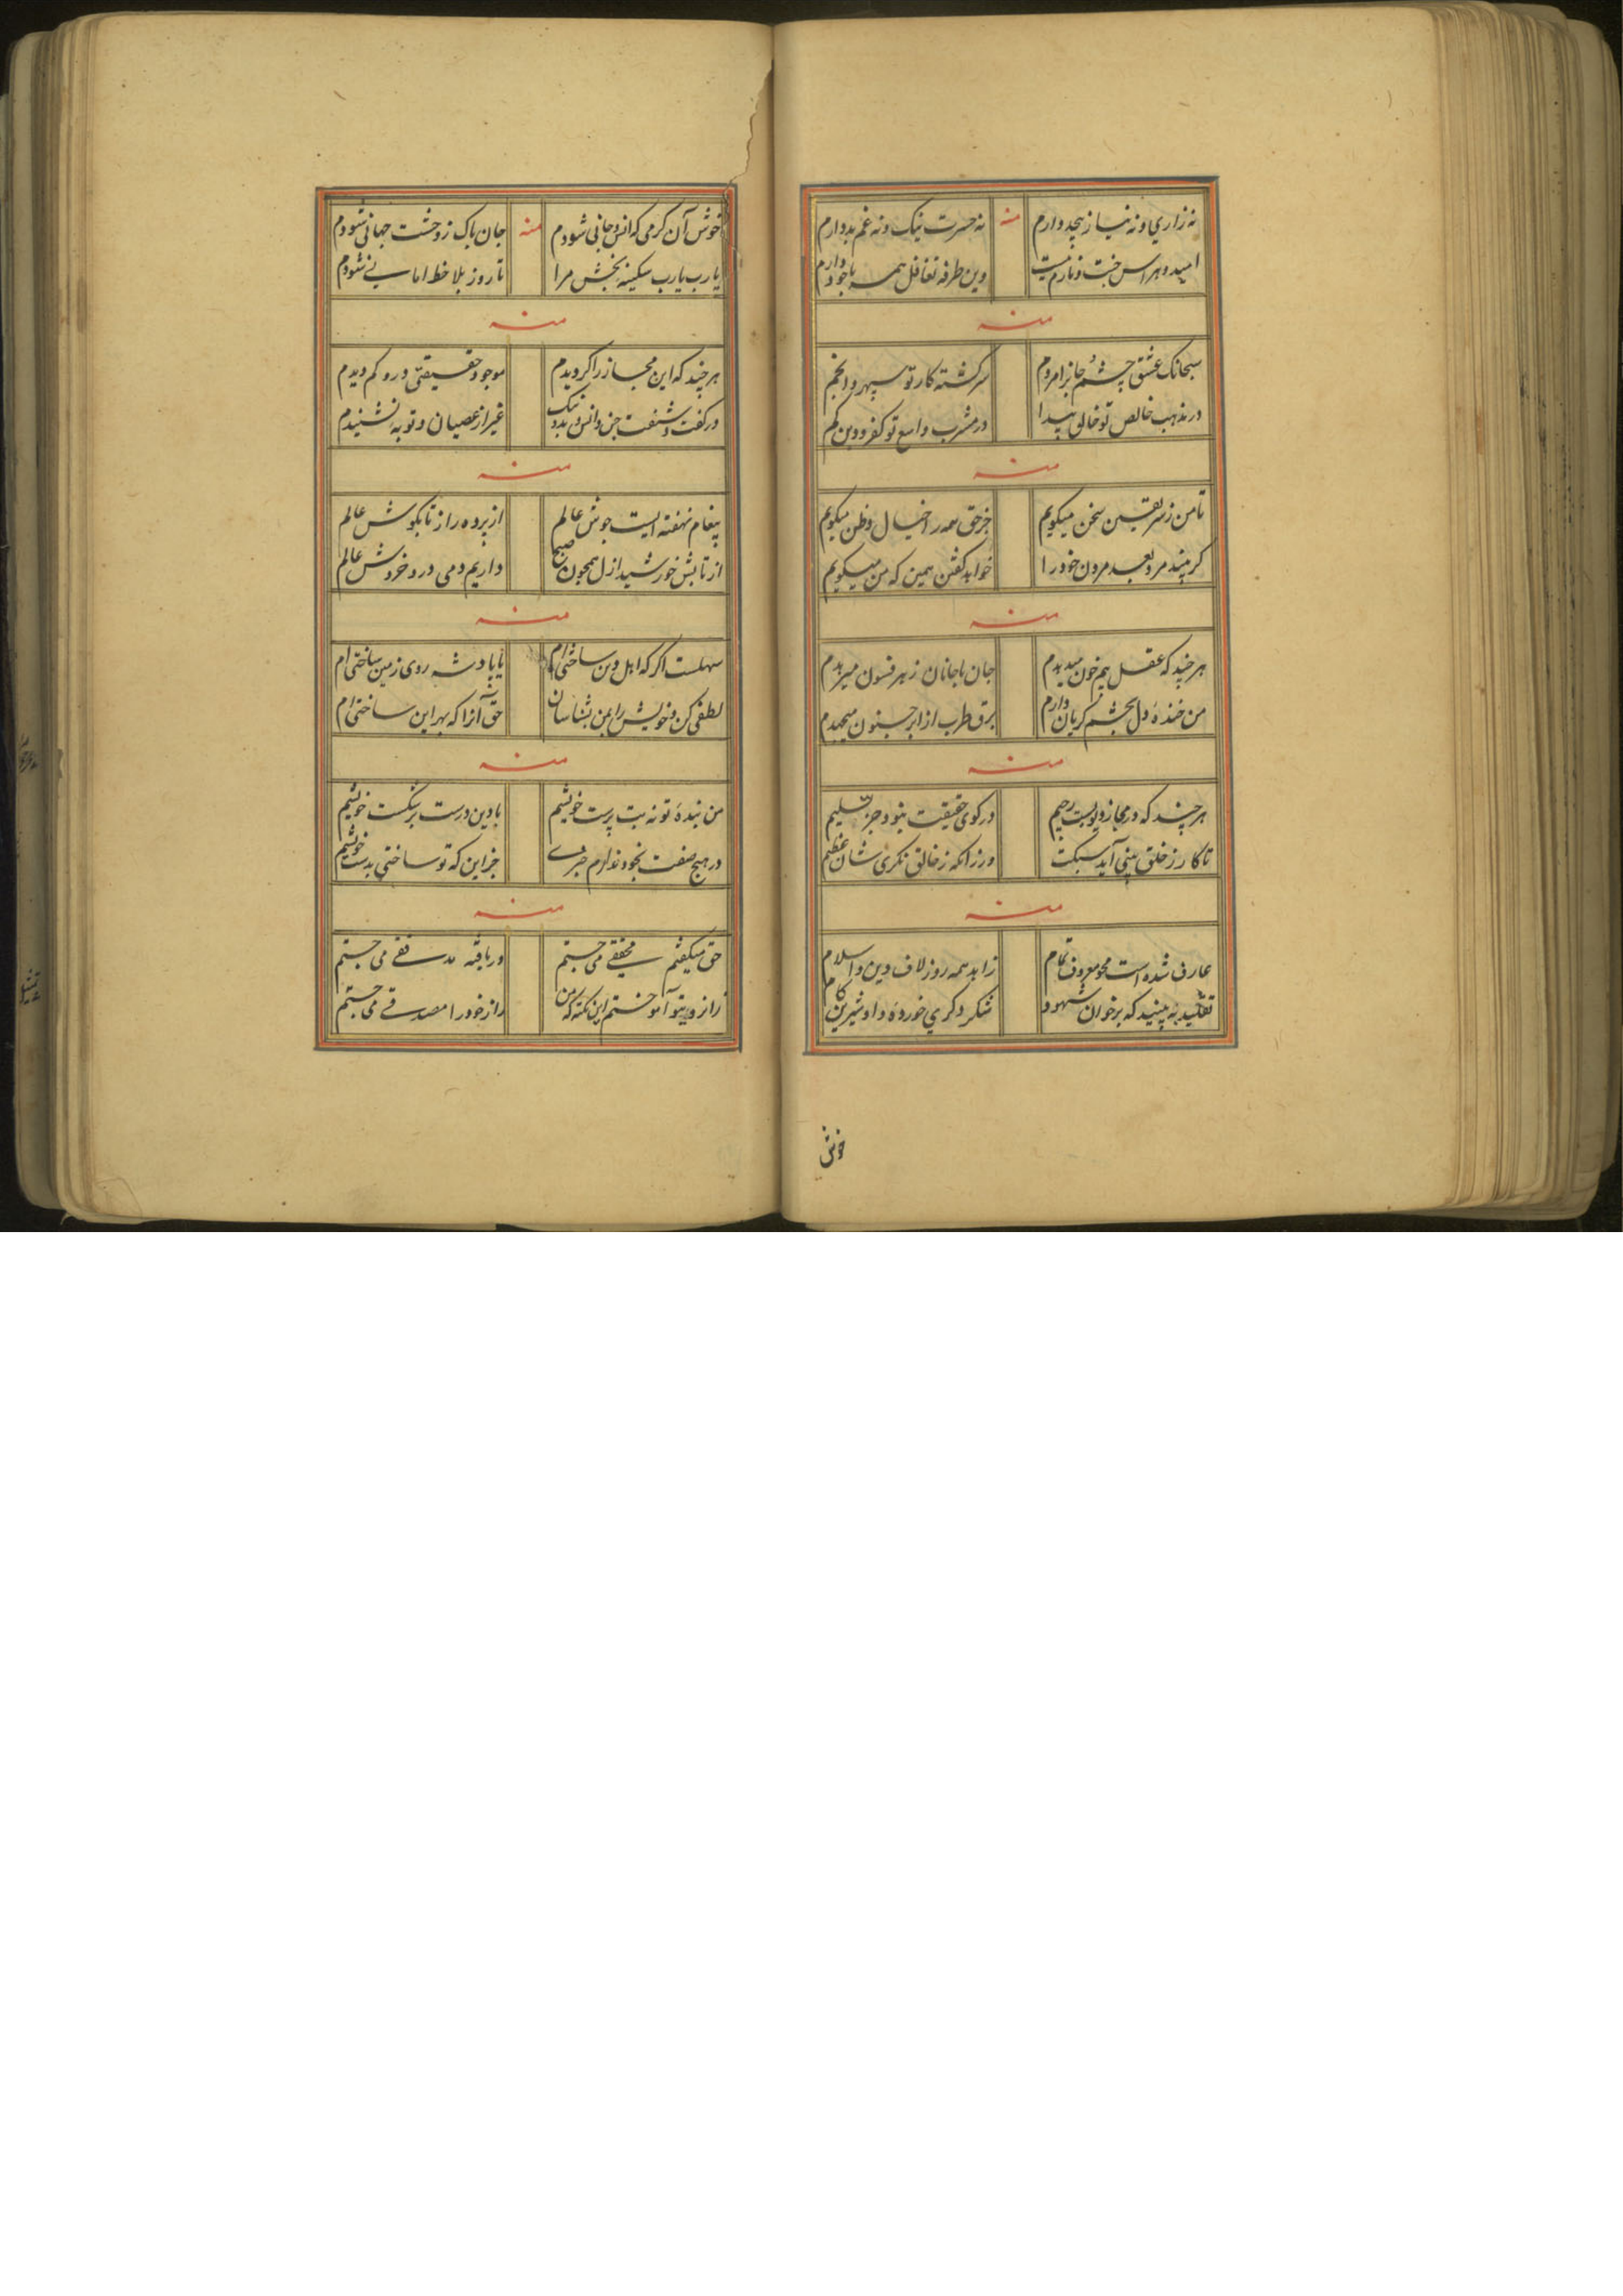 نه زاری و نه نیاز بیحد دارم منه نه حسرت نیک و نه غم بد دارم
امید و هراس جنت و نارم نیست وین طرفه تغافل همه با خود دارم
منه
سبحانک عشق چشم جانرا مردم سرگشته کار تو سپهر و انجم
در مذهب خالص تو خالق پیدا در مشرب واسع تو کفر و دین گم
منه
تا من ز سر یقین سخن میگویم جز حق همه را خیال و ظن میگویم
گر بیند مرد بعد مردن خود را خواهد گفتن همین که من میگویم
منه
هر چند که عقل بیم خون میدیدم جان با جانان ز هر فسون میدیدم
من خنده دل بچشم گریان دارم برق طرب از ابر جنون میدیدم
منه
هر چند که در مجاز دیویست رجیم در کوی حقیقت نبود جز تسلیم
تا کار ز خلق بینی آید سبکت ور زانکه ز خالق نگری شان عظیم
منه
عارف شده است محو معروف تمام زاهد همه روز لاف دین و اسلام
تقلید نه بینید که بر خوان شهود شکر دگری خورده و او شیرین کام
خوش
خوش آن کرمی که انس و جانی شودم منه جان پاک ز وحشت جهانی شودم
یا رب یا رب سکینه بخش مرا تا روز بلا خط امانی شودم
منه
هر چند که این مجاز را گردیدم موجود حقیقتی درو کم دیدم
در گفت و شنفت جن و انس و بد و نیک غیر از عصیان و توبه نشنیدم
منه
پیغام نهفته ایست جوش عالم از پرده راز تا بگوش عالم
از تابش خورشید ازل همچون صبح داریم دمی در و خروش عالم
منه
سهلست اگر که اهل دین ساخته‌ام یا پادشه روی زمین ساخته‌ام
لطفی کن و خویش را بمن بشناسان حق آنرا که بهر این ساخته‌ام
منه
من بنده تو نه بت پرست خویشم با دین درست بر شکست خویشم
در هیچ صفت بخود ندارم خبری جز این که تو ساختی بدست خویشم
منه
حق میگفتم محققی می جستم دریافته مدققی می جستم
راز و بتو آموختم این نکته که من راز خود را مصدقی می جستم